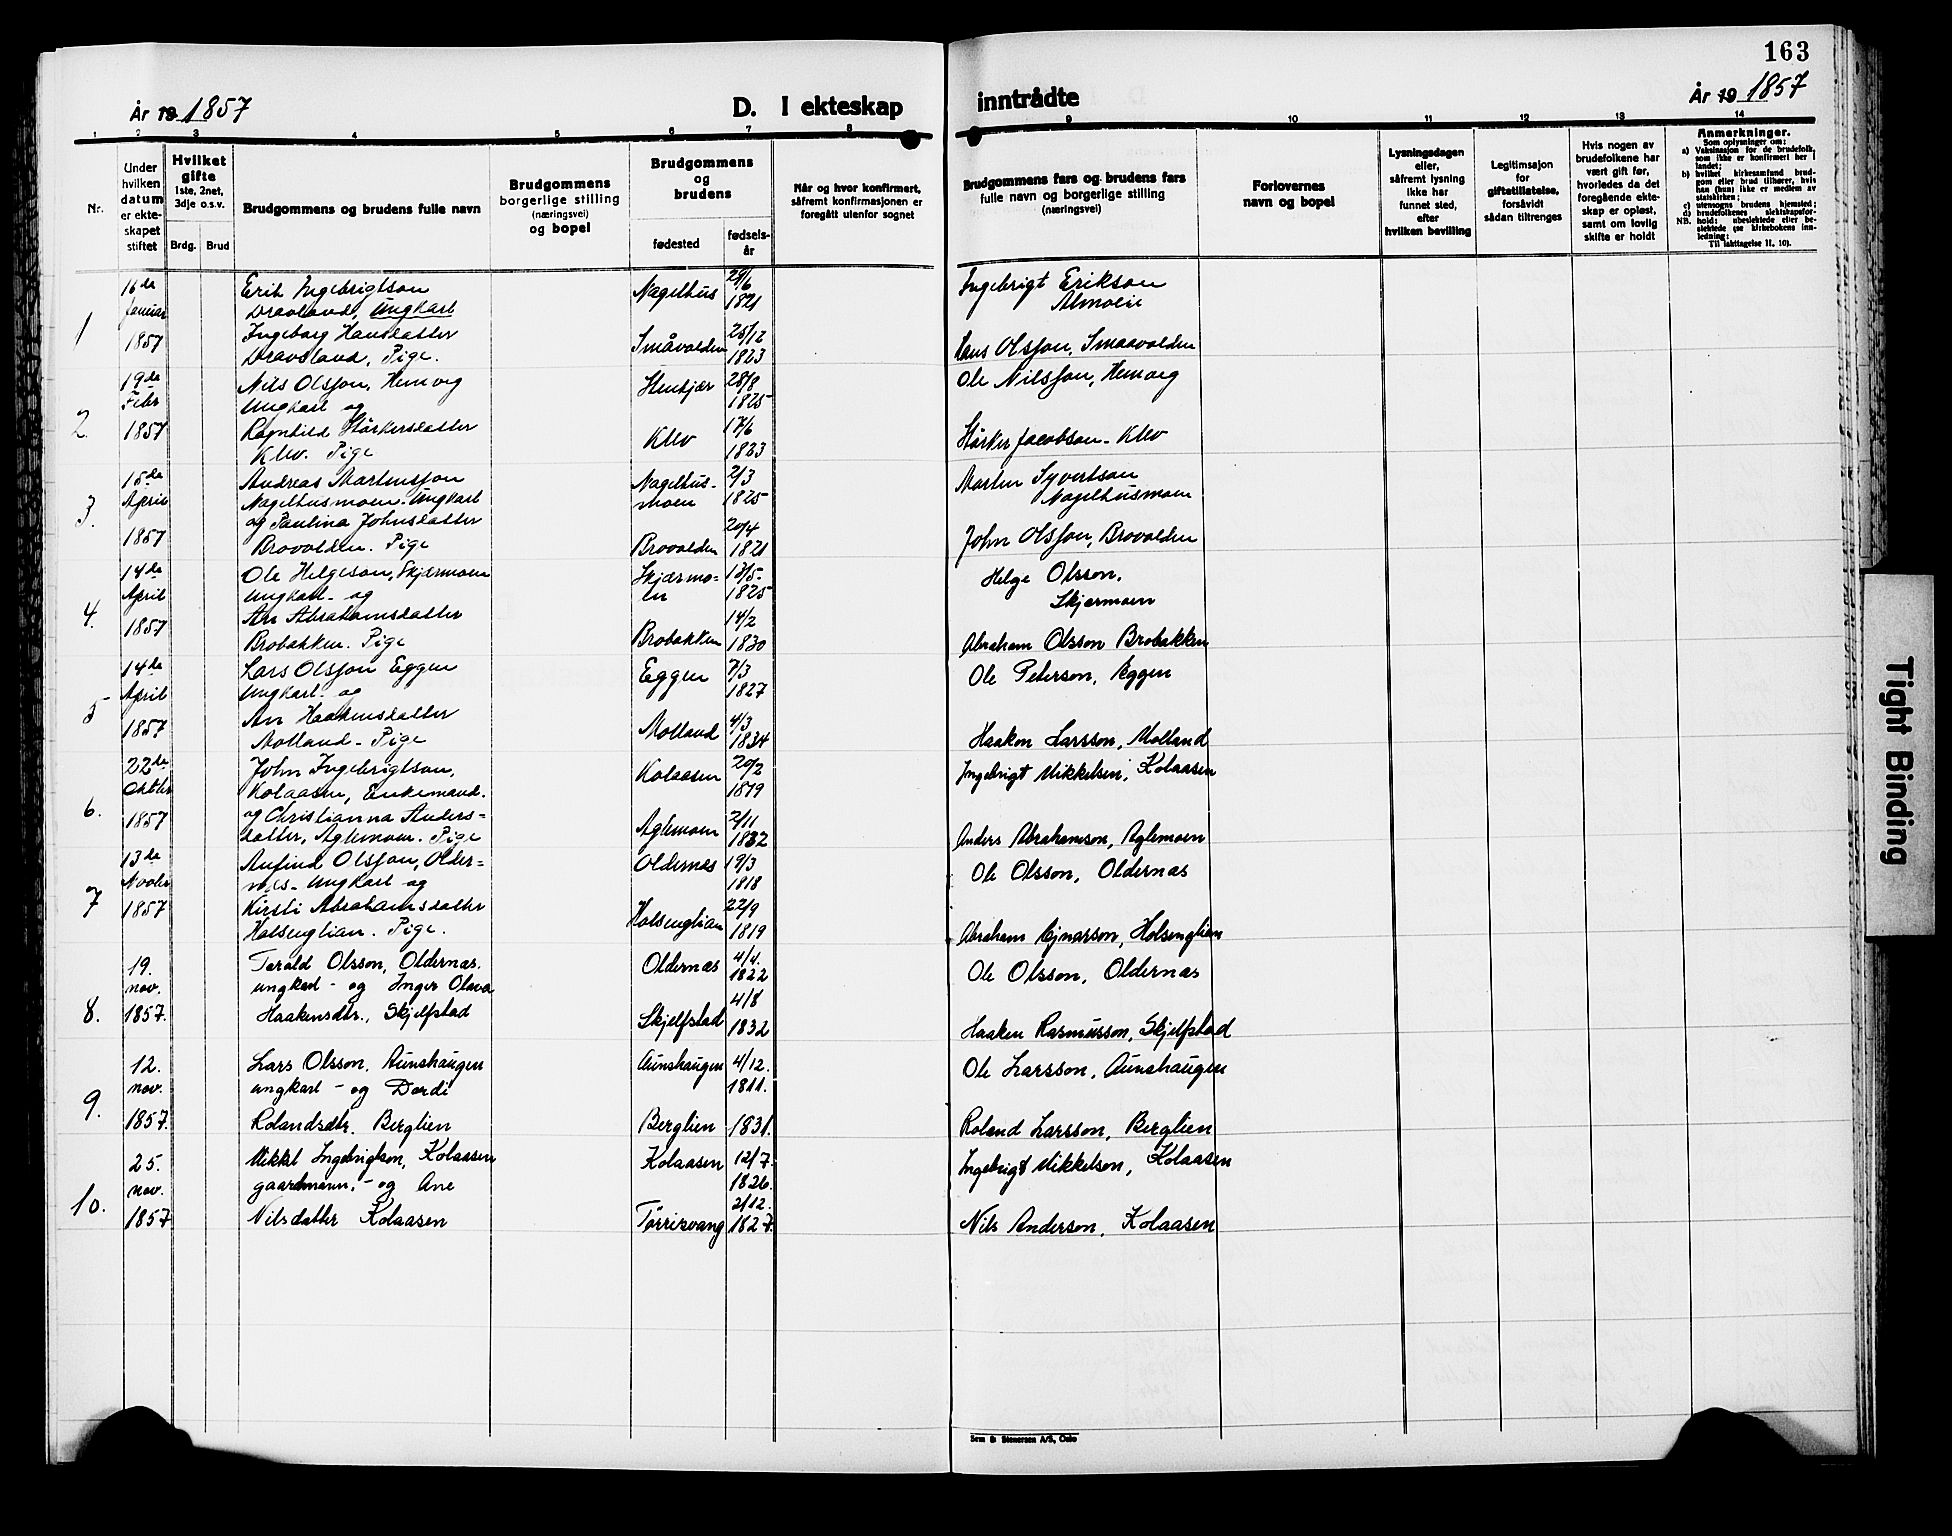 163
År 19 1857
D. I ekteskap inntrådte
År 19 1857
1 2 3 4 5 6 7 8 9 10 11 12 13 14
Nr.
Under hvilken datum er ekteskapet stiftet
Hvilket gifte
1ste, 2net, 3dje o.s.v.
Brdg. Brud
Brudgommens og brudens fulle navn
Brudgommens borgerlige stilling (næringsvei) og bopel
Brudgommens og brudens
fødested
fødselsår
Når og hvor konfirmert, såfremt konfirmasjonen er foregått utenfor sognet
Brudgommens fars og brudens fars fulle navn og borgerlige stilling (næringsvei)
Forlovernes navn og bopel
Lysningsdagen eller, såfremt lysning ikke har funnet sted, efter hvilken bevilling
Legitimasjon for giftetillatelse, forsåvidt sådan tiltrenges
Hvis nogen av brudefolkene har vært gift før, hvorledes da det foregående ekteskap er opløst, samt om lovlig skifte er holdt
Anmerkninger.
Som oplysninger om:
a) Vaksinasjon for de brudefolk, som ikke er konfirmert her i landet;
b) hvilket kirkesamfund brudgom eller brud tilhører, hvis han (hun) ikke er medlem av statskirken;
c) utensogns brudens hjemsted;
d) brudefolkenes slektskapsforhold: ubeslektede eller beslektede (se kirkebokens innledning;
NB.
Til iakttagelse II, 10).
1
16de Januar 1857
Erik Ingebrigtson
Dravland, Ungkarl
Nagelhus
29/6 1821
Ingebrigt Erikson
Almoeie
Ingeborg Hansdatter
Dravland, Pige.
Småvolden
25/12 1823
Hans Olsson, Smaavolden
2.
19de Febr 1857
Nils Olsson, Hemveg
Ungkarl og
Stenkjær
28/8 1825
Ole Nilsson, Hemveg
Ragnhild Stårkersdatter
Klev. Pige
Klev
17/6 1823
Stårker Jacobson - Klev
3.
15de April 1857
Andreas Martensson
Nagelhusmoen. Ungkarl
Nagelhusmoen
2/3 1825
Marten Syvertson
Nagelhusmoen
og Paulina Johnsdatter
Brovolden. Pige
Brovolden
20/4 1821
John Olsson, Brovolden
4.
14de April 1857
Ole Helgeson, Skjærmoen
Ungkarl - og
Skjærmoen
13/5 1825
Helge Olsson.
Skjermoen
An Abrahamsdatter
Brobakken. Pige
Brobakken
14/2 1830
Abraham Olsson Brobakken
5
14de April 1857
Lars Olsson Eggen
Ungkarl - og
Eggen
7/3 1827
Ole Peterson, Eggen
An Haakensdatter
Molland - Pige
Molland
4/3 1834
Haakon Larsson, Molland
6.
22de Oktbr 1857
John Ingebrigtson,
Kolaasen, Enkemand.
Kolaasen
20/2 1819
Ingebrigt Mikkelsen, Kolaasen
og Christianna Andersdatter, Aglemoen. Pige
Aglemoen
2/11 1832
Anders Abrahamson, Aglemoen
7
13de Novbr 1857
Anfind Olsson, Oldernæs - Ungkarl og
Oldernæs
19/3 1818
Ole Olsson, Oldernæs
Kirsti Abrahamsdatter
Holsenglian. Pige.
Holsenglian
22/9 1819
Abraham Ejnarson, Holsenglien
8.
19. nov. 1857.
Tarald Olsson, Oldernæs.
ungkarl - og Inger Olava
Oldernæs
4/4. 1822
Ole Olsson, Oldernæs
Haakensdtr., Skjelfstad
Skjelfstad
4/8 1832
Haaken Rasmusson, Skjelfstad
9.
12. nov. 1857.
Lars Olsson. Aunshaugen
ungkarl - og Dordi
Aunshaugen
4/12. 1811.
Ole Larsson, Aunshaugen
Rolandsdtr. Berglien
Berglien
1831.
Roland Larsson, Berglien
10.
25. nov. 1857
Mikkel Ingebrigtson, Kolaasen
gaardmann, - og Ane
Kolaasen
12/7. 1826.
Ingebrigt Mikkelson, Kolaasen
Nilsdatter Kolaasen
Tørrisvang
2/12. 1827.
Nils Anderson, Kolaasen
Sem & Stenersen A/S, Oslo
Tight Binding